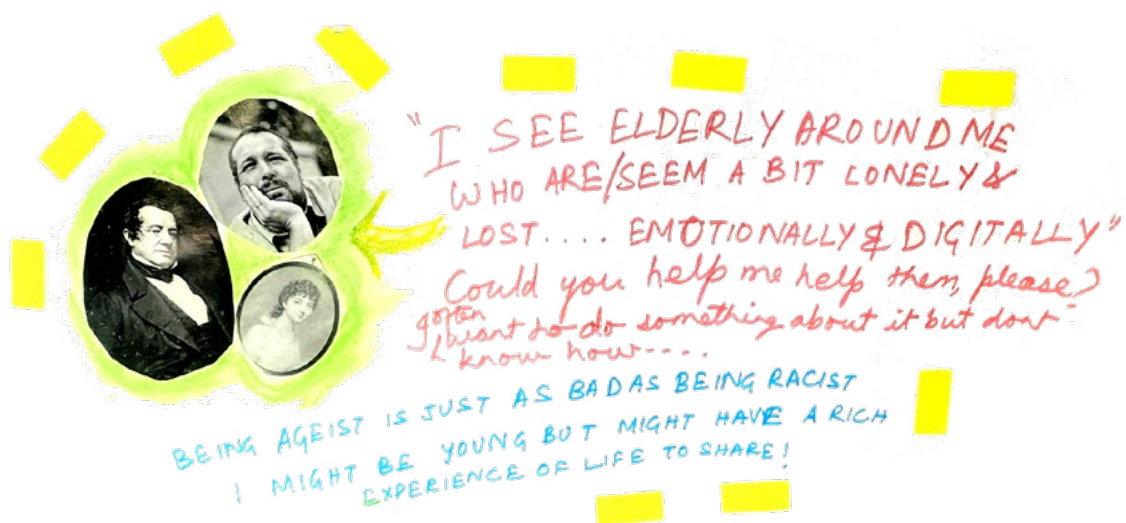 "I SEE ELDERLY AROUND ME
WHO ARE/SEEM A BIT LONELY &
LOST.... EMOTIONALLY & DIGITALLY"
Could you help me help them, please?
I often want to do something about it but dont
know how....
BEING AGEIST IS JUST AS BAD AS BEING RACIST
I MIGHT BE YOUNG BUT MIGHT HAVE A RICH
EXPERIENCE OF LIFE TO SHARE!